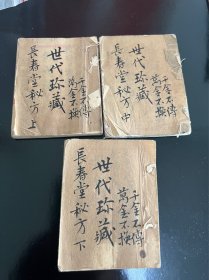 千金不傳
萬金不換
世代珍藏
長春堂秘方上
千金不傳
萬金不換
世代珍藏
長春堂秘方中
千金不傳
萬金不換
世代珍藏
長春堂秘方下